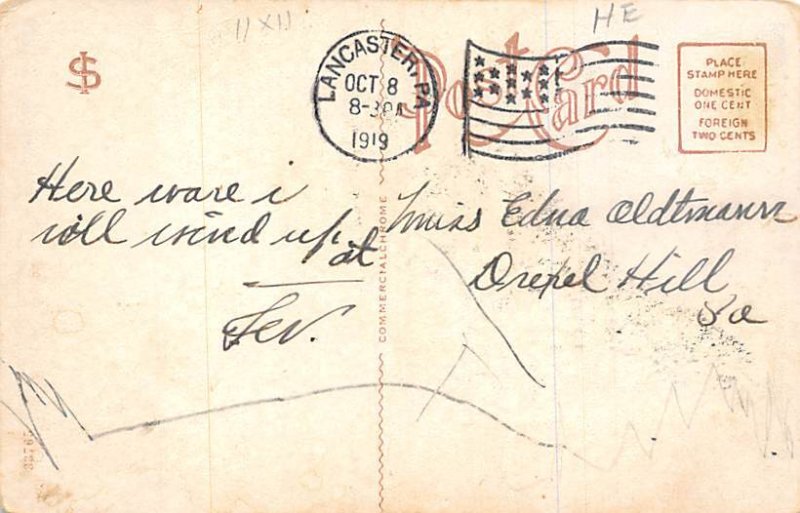 HE
LANCASTER, PA
OCT 8
1919
Post Card
PLACE
STAMP HERE
DOMESTIC
ONE CENT
FOREIGN
TWO CENTS
Here ware i
will wind up
at
COMMERCIALCHROME
Miss Edna Oldtmann
Drexel Hill
Pa